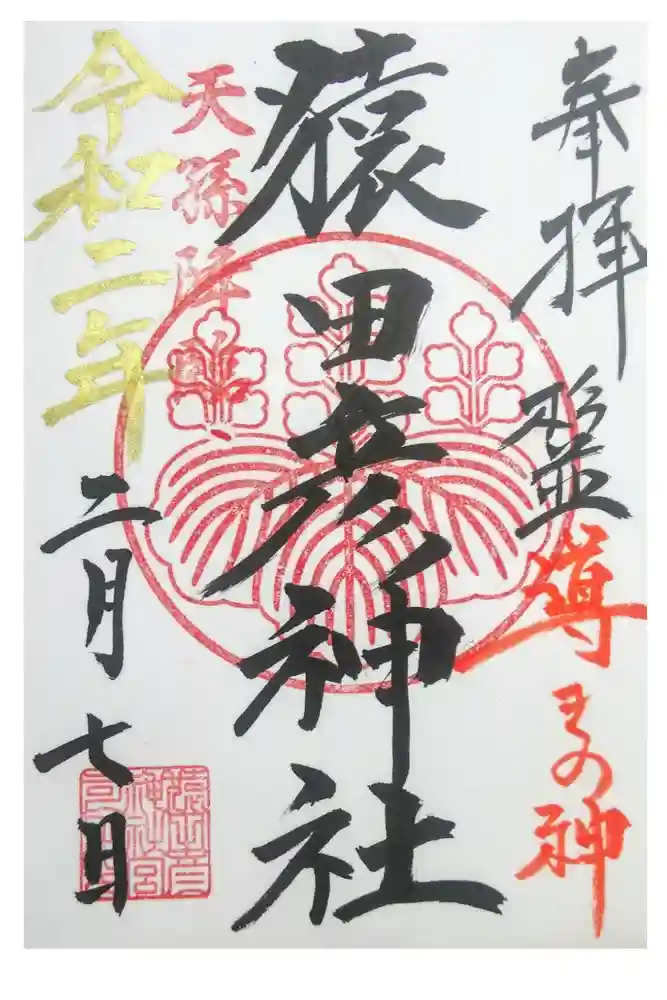 奉拝
導きの神
猿田彦神社
天孫降臨
令和二年
二月七日
猿田彦
神社宮